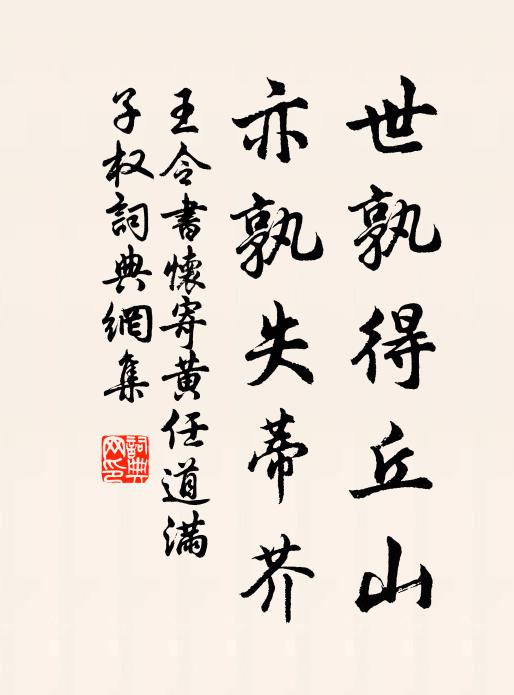 世孰得丘山
亦孰失蒂芥
王令書懷寄黄任道滿
子权詞典網集
詞典网印